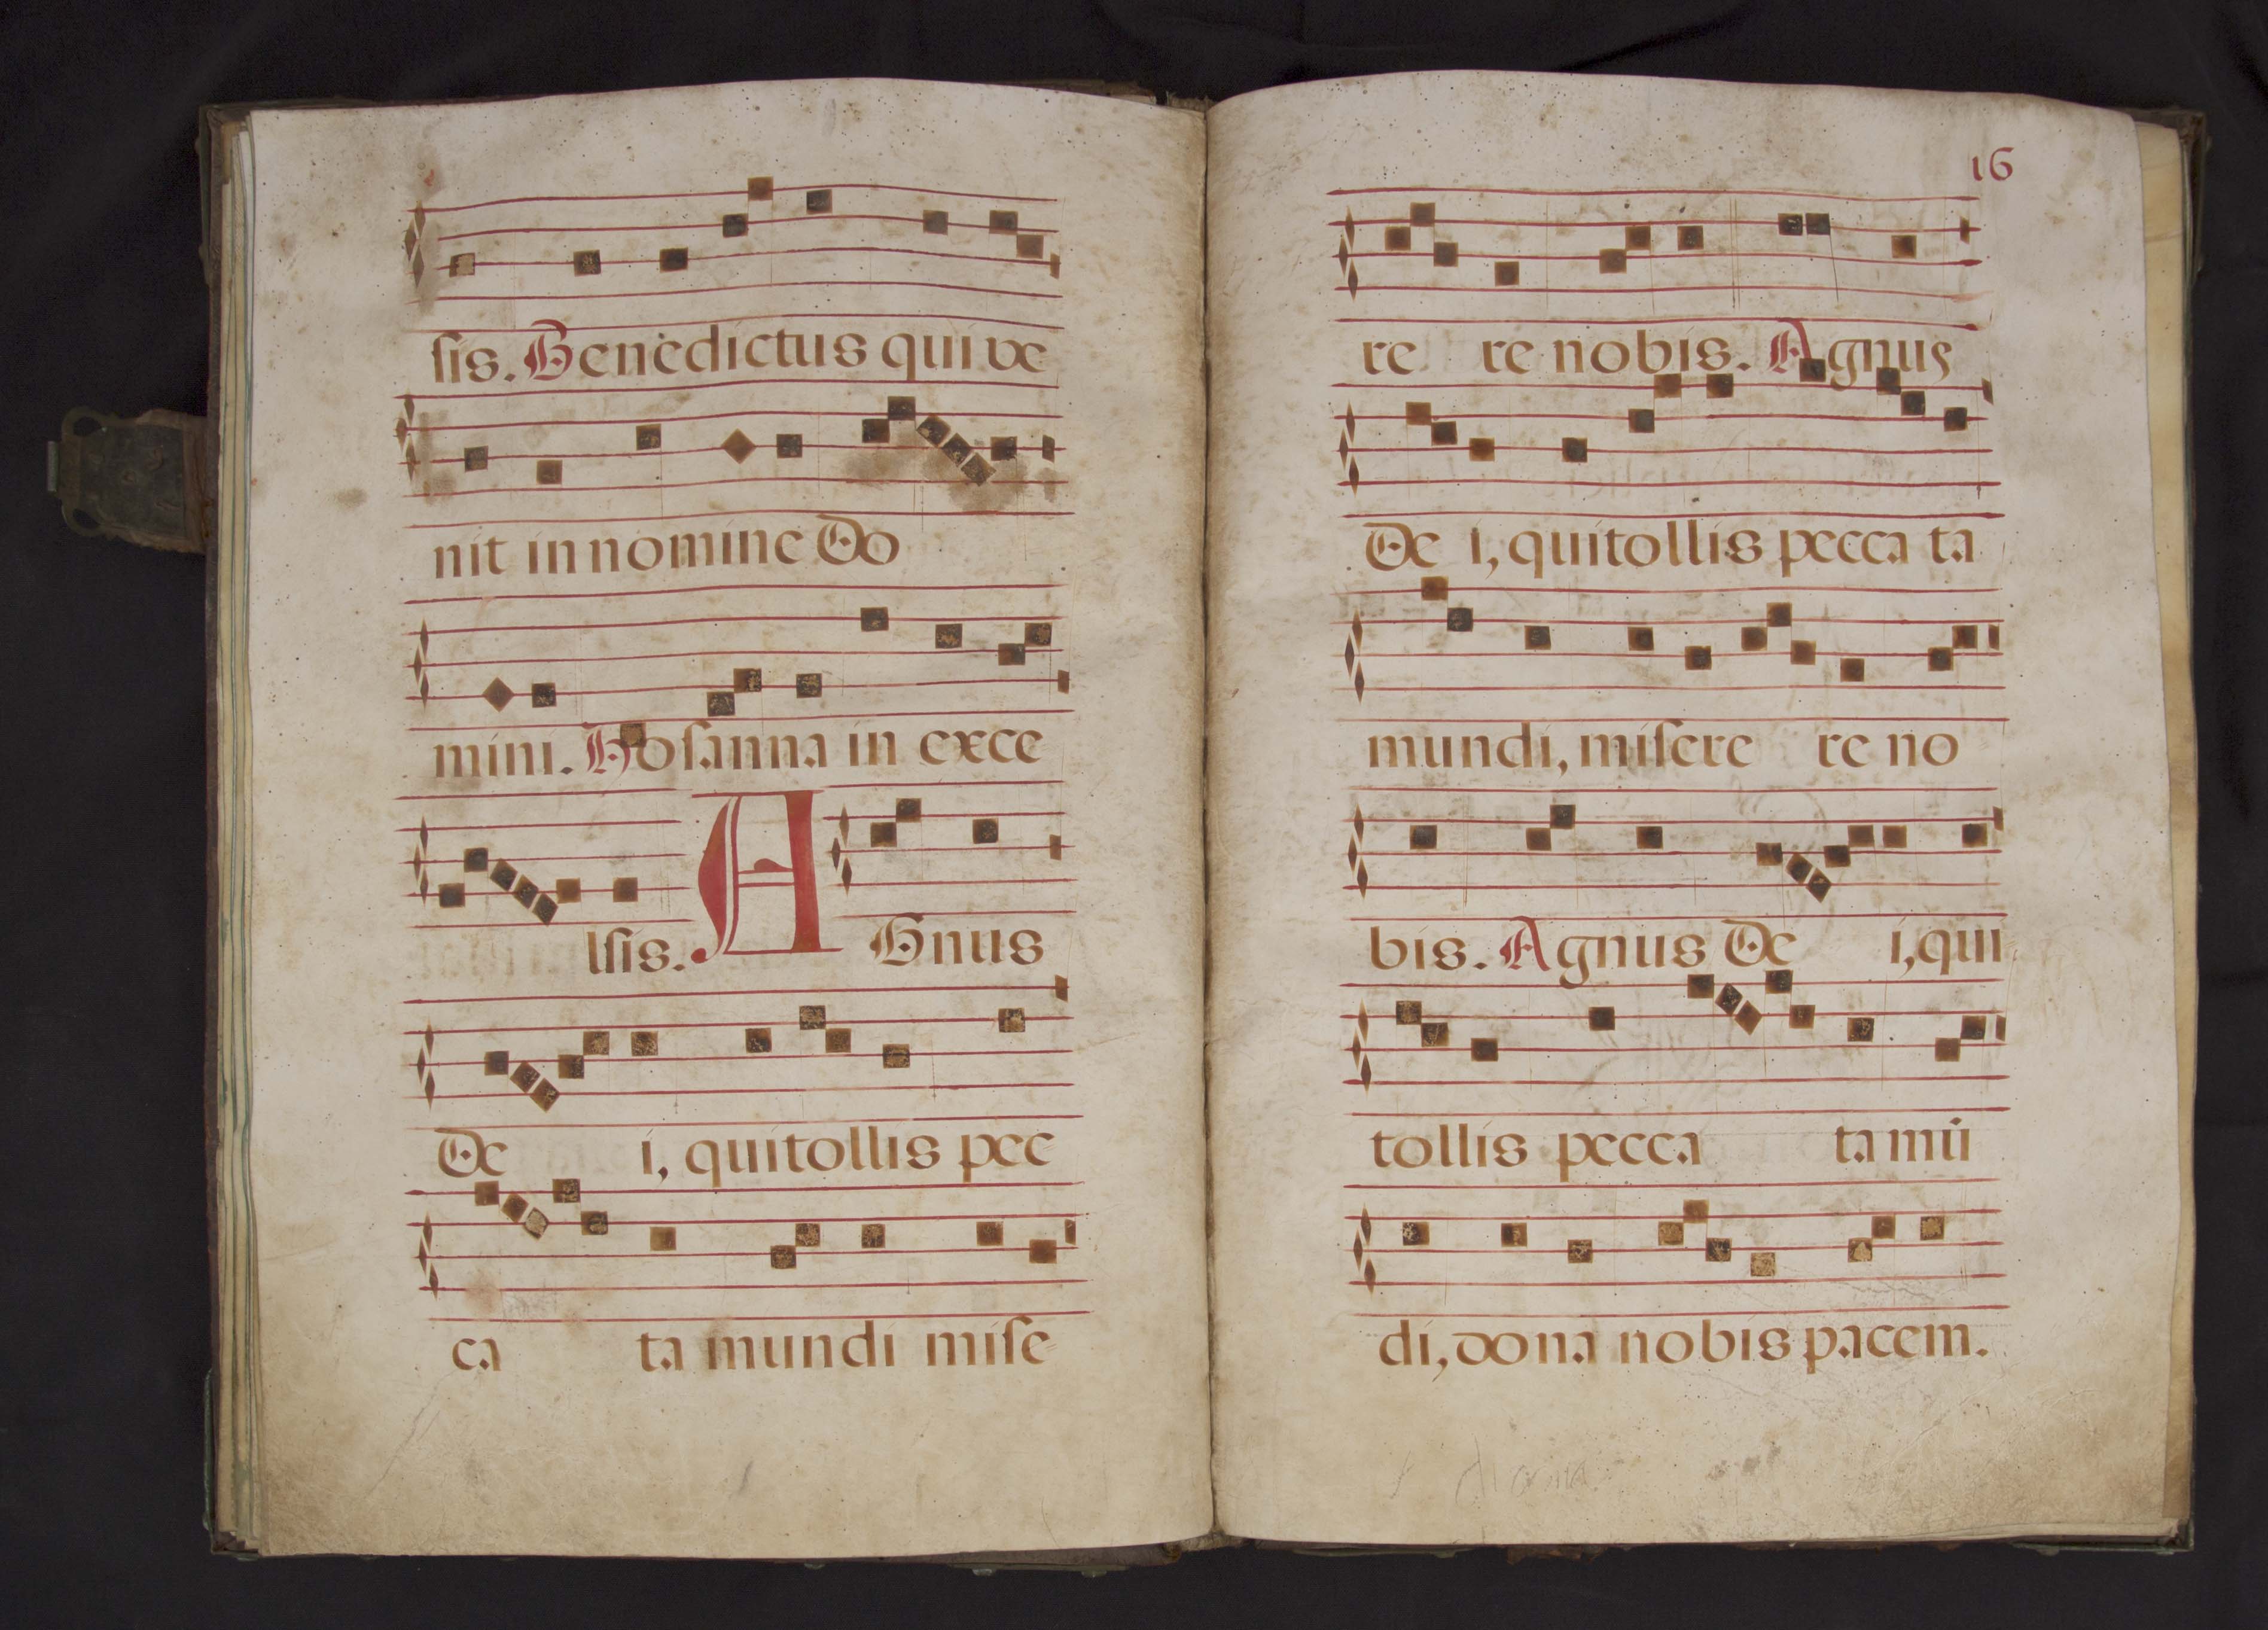 ſis. Benedictus qui ve
nit in nomine Do
mini. Hosanna in exce
lſis. AGnus
De i, qui tollis pec
ca ta mundi miſe=
16
re re nobis. Agnus
De i, qui tollis pecca ta
mundi, miſere re no
bis. Agnus De i, qui
tollis pecca ta mū
di, dona nobis pacem.